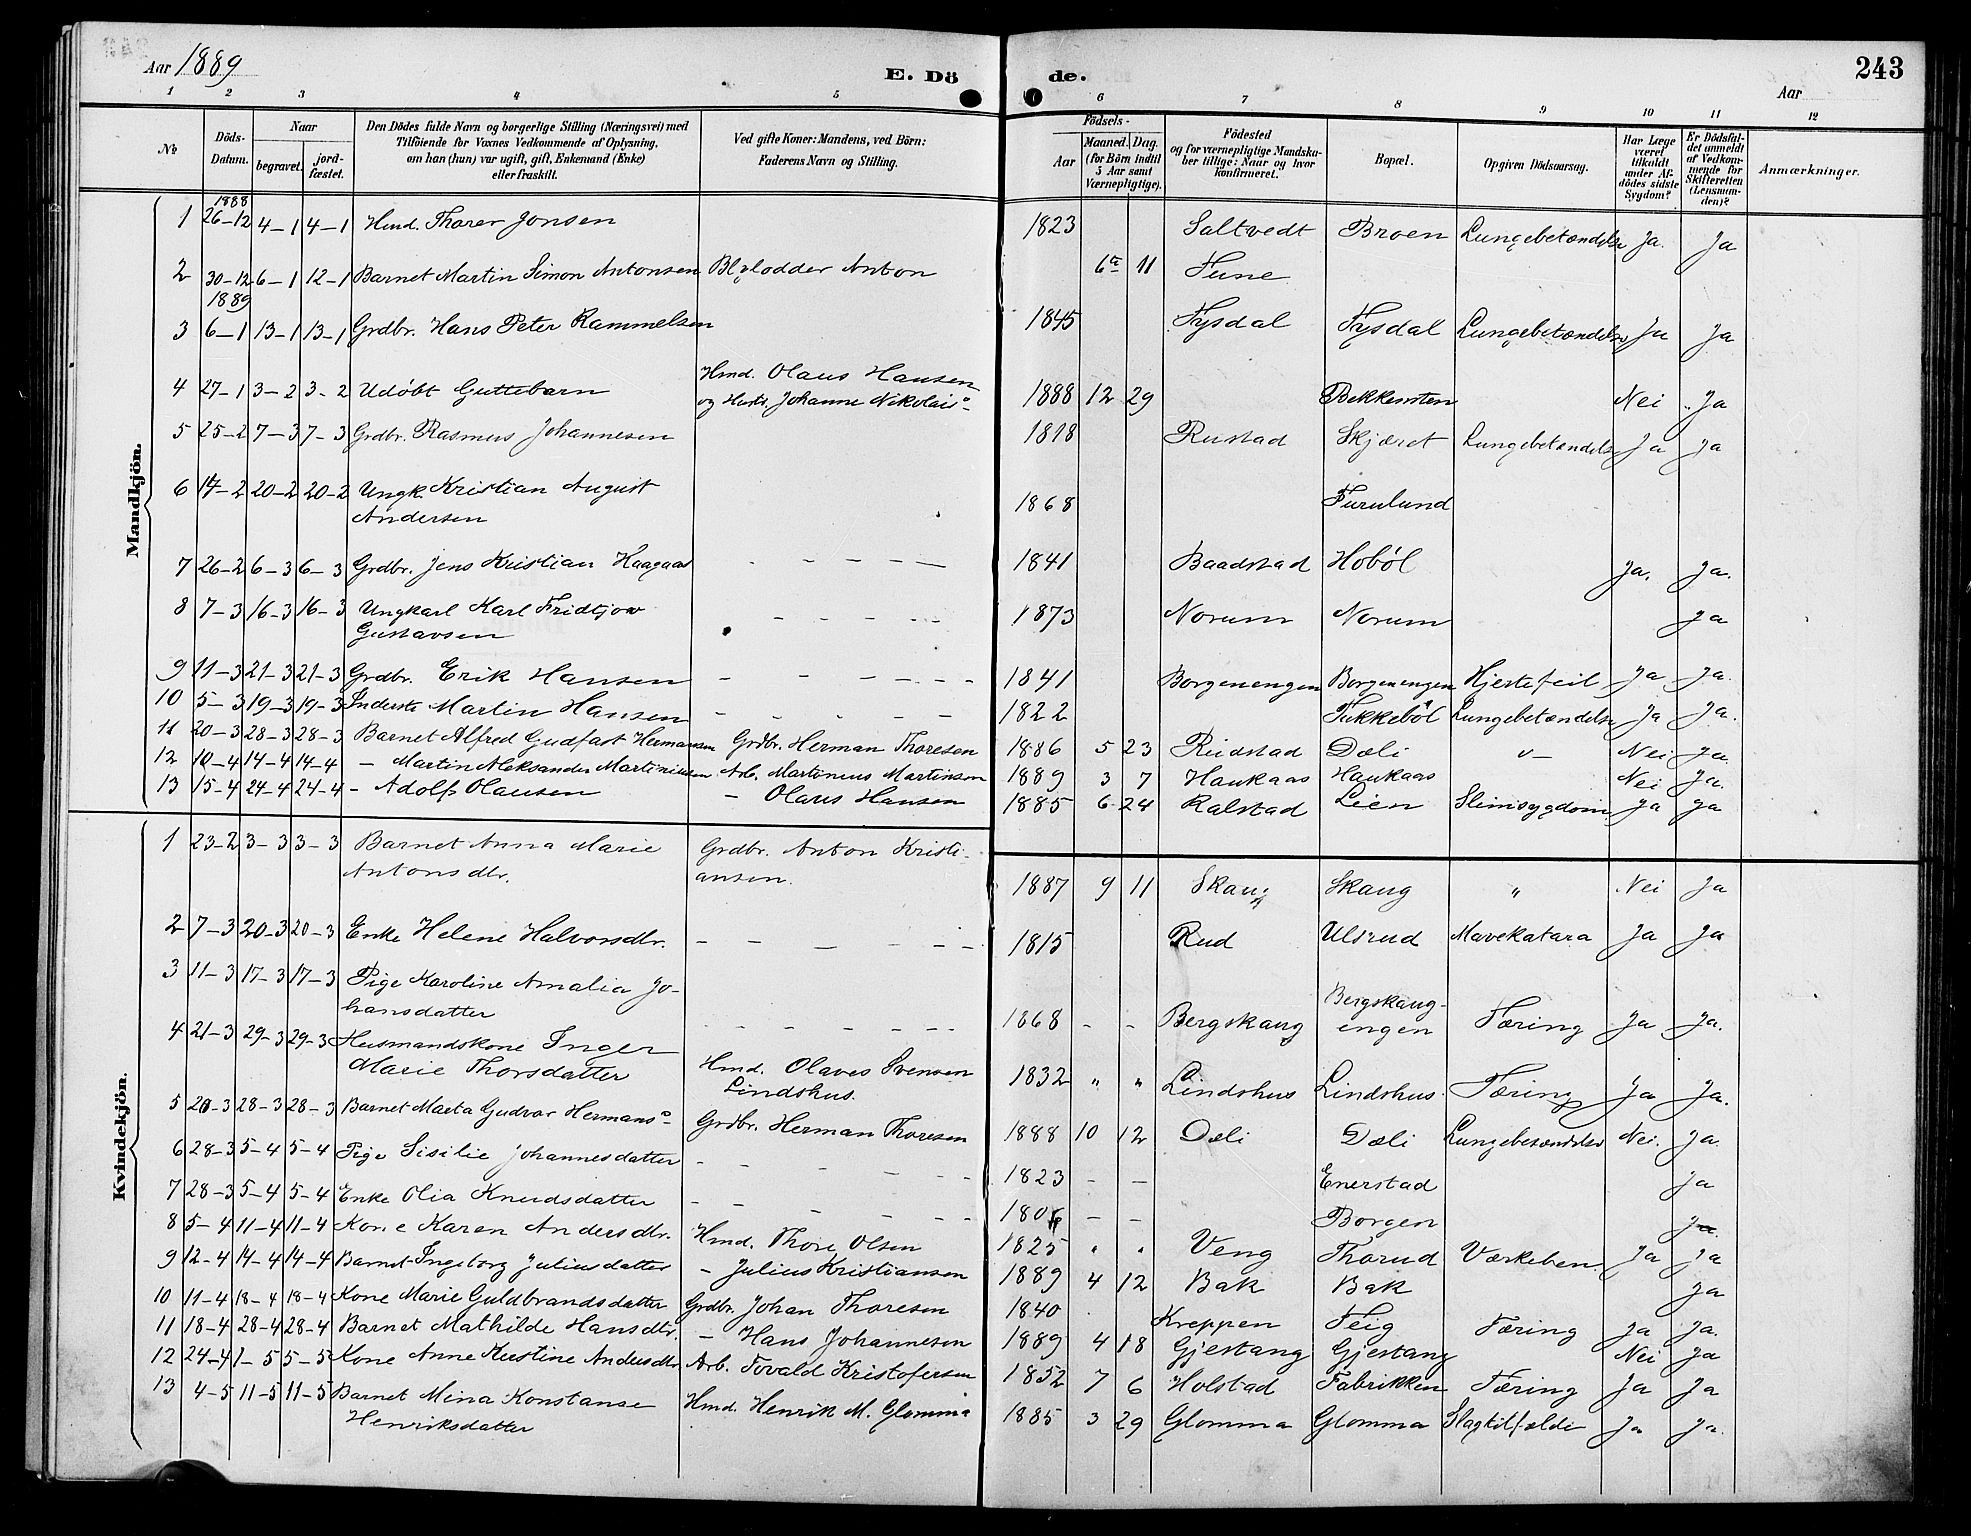 Aar 1889
E. Dö
de.
243
Aar
1 2 3 4 5 6 7 8 9 10 11 12
No
Döds-Datum.
Naar
begravet.
jord-fæstet.
Den Dödes fulde Navn og borgerlige Stilling (Næringsvei) med
Tilföiende for Voxnes Vedkommende af Oplysning,
om han (hun) var ugift, gift, Enkemand (Enke)
eller fraskilt.
Ved gifte Koner: Mandens, ved Börn:
Faderens Navn og Stilling.
Födsels-
Aar
Maaned. Dag.
(for Börn indtil
5 Aar samt
Værnepligtige).
Födested
og for værnepligtige Mandska-
ber tillige: Naar og hvor
konfirmeret.
Bopæl.
Opgiven Dödsaarsag.
Har Læge
været
tilkaldt
under Af-
dödes sidste
Sygdom?
Er Dödsfal-
det anmeldt
af Vedkom-
mende for
Skifteretten
(Lensman-
den)?
Anmærkninger.
Mandkjön.
1888
1 26-12 4-1 4-1 Hmd. Thorer Jonsen 1823 Saltvedt Broen Lungebetændelse Ja Ja
2 30-12 6-1 12-1 Barnet Martin Simon Antonsen Anton 6 11 Tune
1889
3 6-1 13-1 13-1 Grdbr. Hans Peter Rammelsen 1845 Tysdal Tysdal Lungebetændelse Ja Ja
4 27-1 3-2 3-2 Udøbt Guttebarn Hmd. Olaus Hansen
og Hustr. Johanne Nikolais- 1888 12 29 Bekkensten Nei Ja
5 25-2 7-3 7-3 Grdbr. Rasmus Johannesen 1818 Rustad Skjæret Lungebetændelse Ja Ja
6 14-2 20-2 20-2 Ungk. Kristian August
Andersen 1868 Furulund
7 26-2 6-3 6-3 Grdbr. Jens Kristian Haagaas - - - - - 1841 Baadstad Hobøl Ja. Ja.
8 7-3 16-3 16-3 Ungkarl Karl Fridtjow
Gustavsen - - - - - 1873 Norum Norum Ja
9 11-3 21-3 21-3 Grdbr. Erik Hansen - - - - - - 1841 Borgenengen Borgenengen Hjertefeil Ja Ja.
10 5-3 19-3 19-3 Inderste Martin Hansen - - - - - 1822 Tukkebøl Lungebetændelse Ja Ja.
11 20-3 28-3 28-3 Barnet Alfred Gudfast Hermansen Grdbr. Herman Thoresen 1886 5 23 Rudstad Dæli Nei Ja.
12 10-4 14-4 14-4 - Martin Aleksander Martiniussen Arb. Martinius Martinsen 1889 3 7 Haukaas Haukaas Nei Ja.
13 15-4 24-4 24-4 - Adolf Olausen - Olaus Hansen 1885 6 24 Kalstad Lien Slimsygdom Ja Ja
Kvindekjön.
1 23-2 3-3 3-3 Barnet Anna Marie
Antonsdtr. Grdbr. Anton Kristi-
ansen. 1887 9 11 Skaug Skaug " Nei Ja
2 7-3 20-3 20-3 Enke Helene Halvorsdtr. - - - - - - 1815 Rud Ulsrud Mavekatara Ja Ja
3 11-3 17-3 17-3 Pige Karoline Amalia Jo-
hansdatter - - - - - - 1868 - - Bergskaug Bergskaug-
engen Tæring Ja Ja.
4 21-3 29-3 29-3 Husmandskone Inger
Marie Thorsdatter Hmd. Olaves Svensen
Lindshus. 1832 " " Lindshus Lindshus. Tæring Ja Ja.
5 20-3 28-3 28-3 Barnet Marta Gudror Hermans- Grdbr. Herman Thoresen 1888 10 12 Dæli Dæli Lungebetændelse Nei. Ja.
6 28-3 5-4 5-4 Pige Sisilie Johannesdatter - - - - - - 1823 - - Enerstad Ja
7 28-3 5-4 5-4 Enke Olia Knudsdatter - - - - - - - - Borgen Ja.
8 5-4 11-4 11-4 Kone Karen Andersdtr. Hmd. Thore Olsen 1825 " " Veng Thorud Værkeben. Ja Ja
9 12-4 14-4 14-4 Barnet Ingeborg Juliusdatter - Julius Kristiansen 1889 4 12 Bak Bak Ja
10 11-4 18-4 18-4 Kone Marie Guldbrandsdatter Grdbr. Johan Thoresen 1840 Kreppen Feig Tæring Ja Ja.
11 18-4 28-4 28-4 Barnet Mathilde Hansdtr. - Hans Johannesen 1889 4 18 Gjestang Gjestang Nei Ja
12 24-4 1-5 5-5 Kone Anne Kristine Andersdtr. Arb. Tovald Kristofersen 1852 7 6 Holstad Fabrikken Tæring Ja Ja
13 4-5 11-5 11-5 Barnet Mina Konstanse
Henriksdatter Hmd. Henrik M. Glomma 1885 3 29 Glomma Glomma Slagtilfælde Ja Ja.